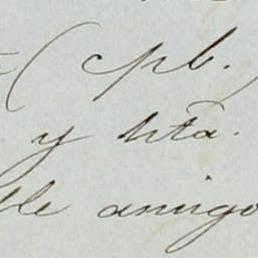 (cpb.)
y hta.
lle amigo